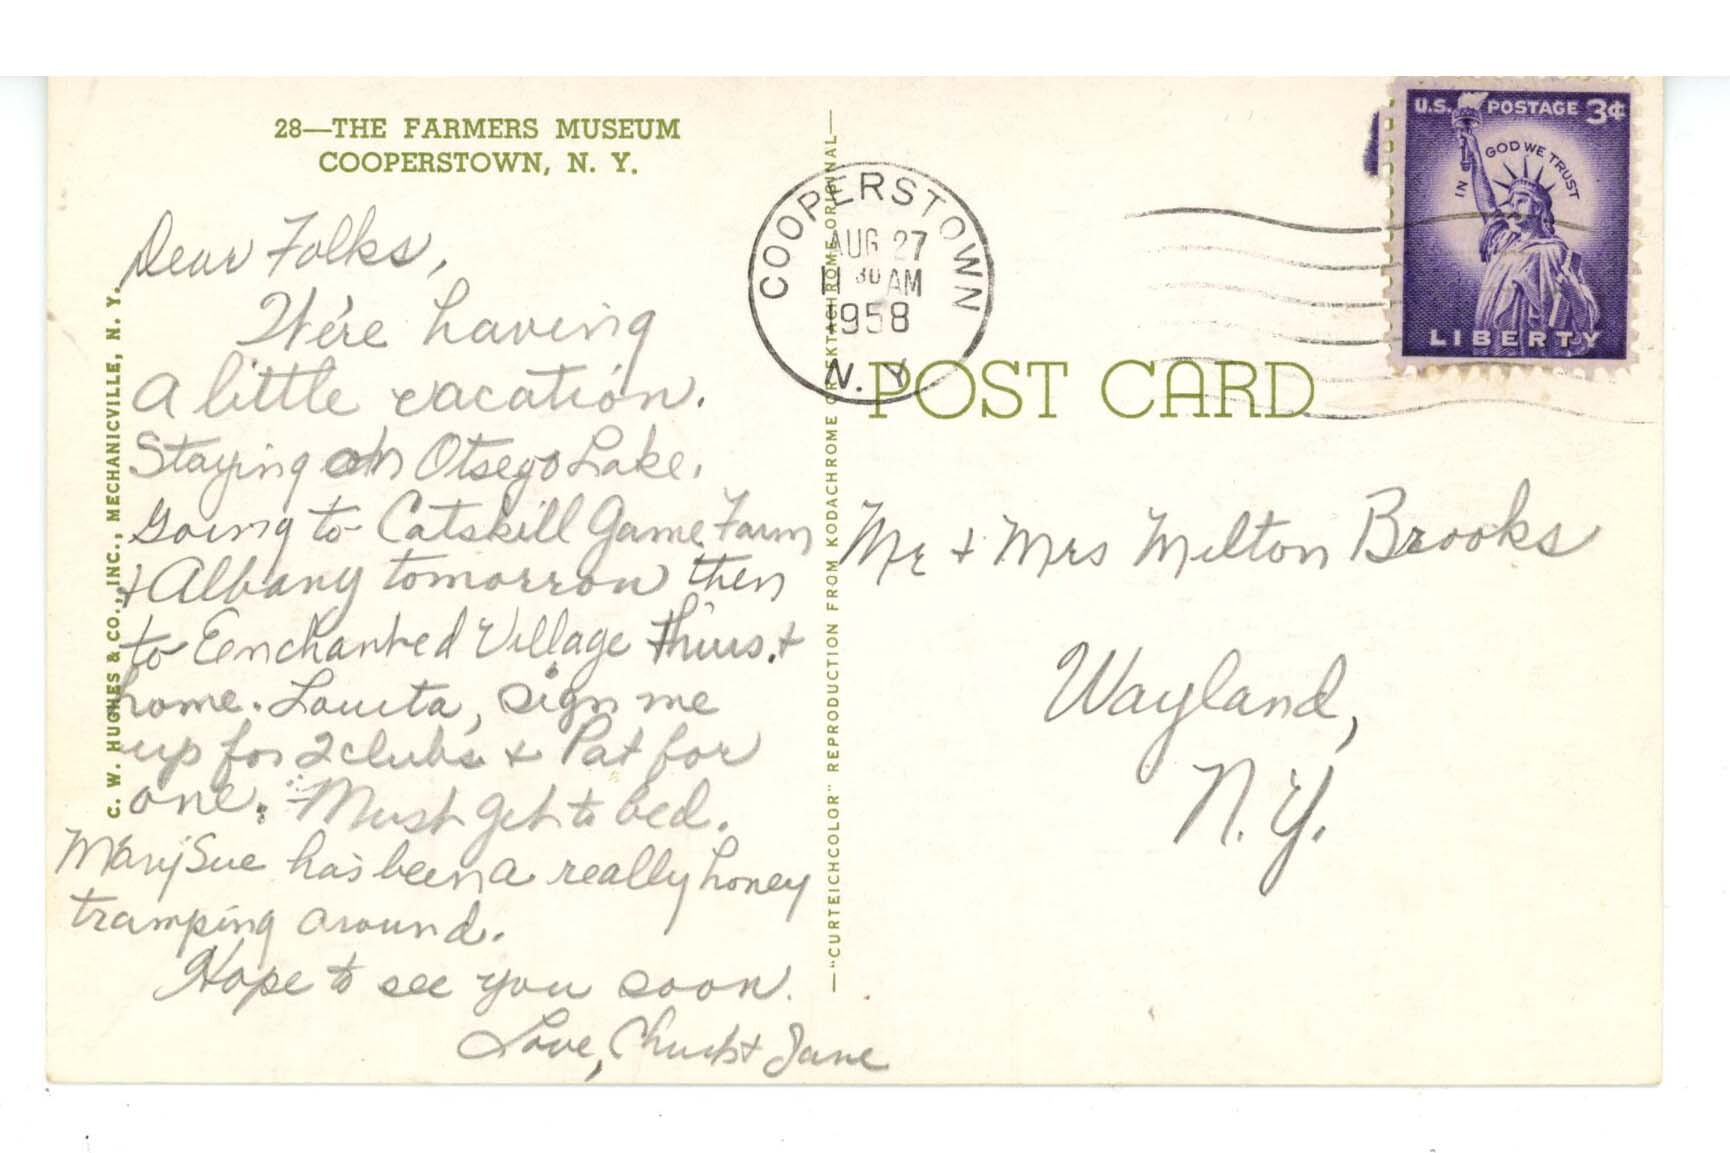 28—THE FARMERS MUSEUM
COOPERSTOWN, N. Y.
Dear Folks,
We're having
a little vacation.
Staying on Otsego Lake.
Going to Catskill Game Farm
+ Albany tomorrow then
to Eenchanted Village Thurs. +
home. Louita, sign me
up for 2 clubs + Pat for
one. Must get to bed.
Mary Sue has been a really honey
tramping around.
Hope to see you soon.
Love, Chuck + Jane
C. W. HUGHES & CO., INC., MECHANICVILLE, N. Y.
—"CURTEICHCOLOR" REPRODUCTION FROM KODACHROME OR EKTACHROME ORIGINAL—
COOPERSTOWN
AUG 27
11 30 AM
1958
N. Y.
U.S. POSTAGE 3¢
IN GOD WE TRUST
LIBERTY
POST CARD
Mr + Mrs Milton Brooks
Wayland,
N. Y.